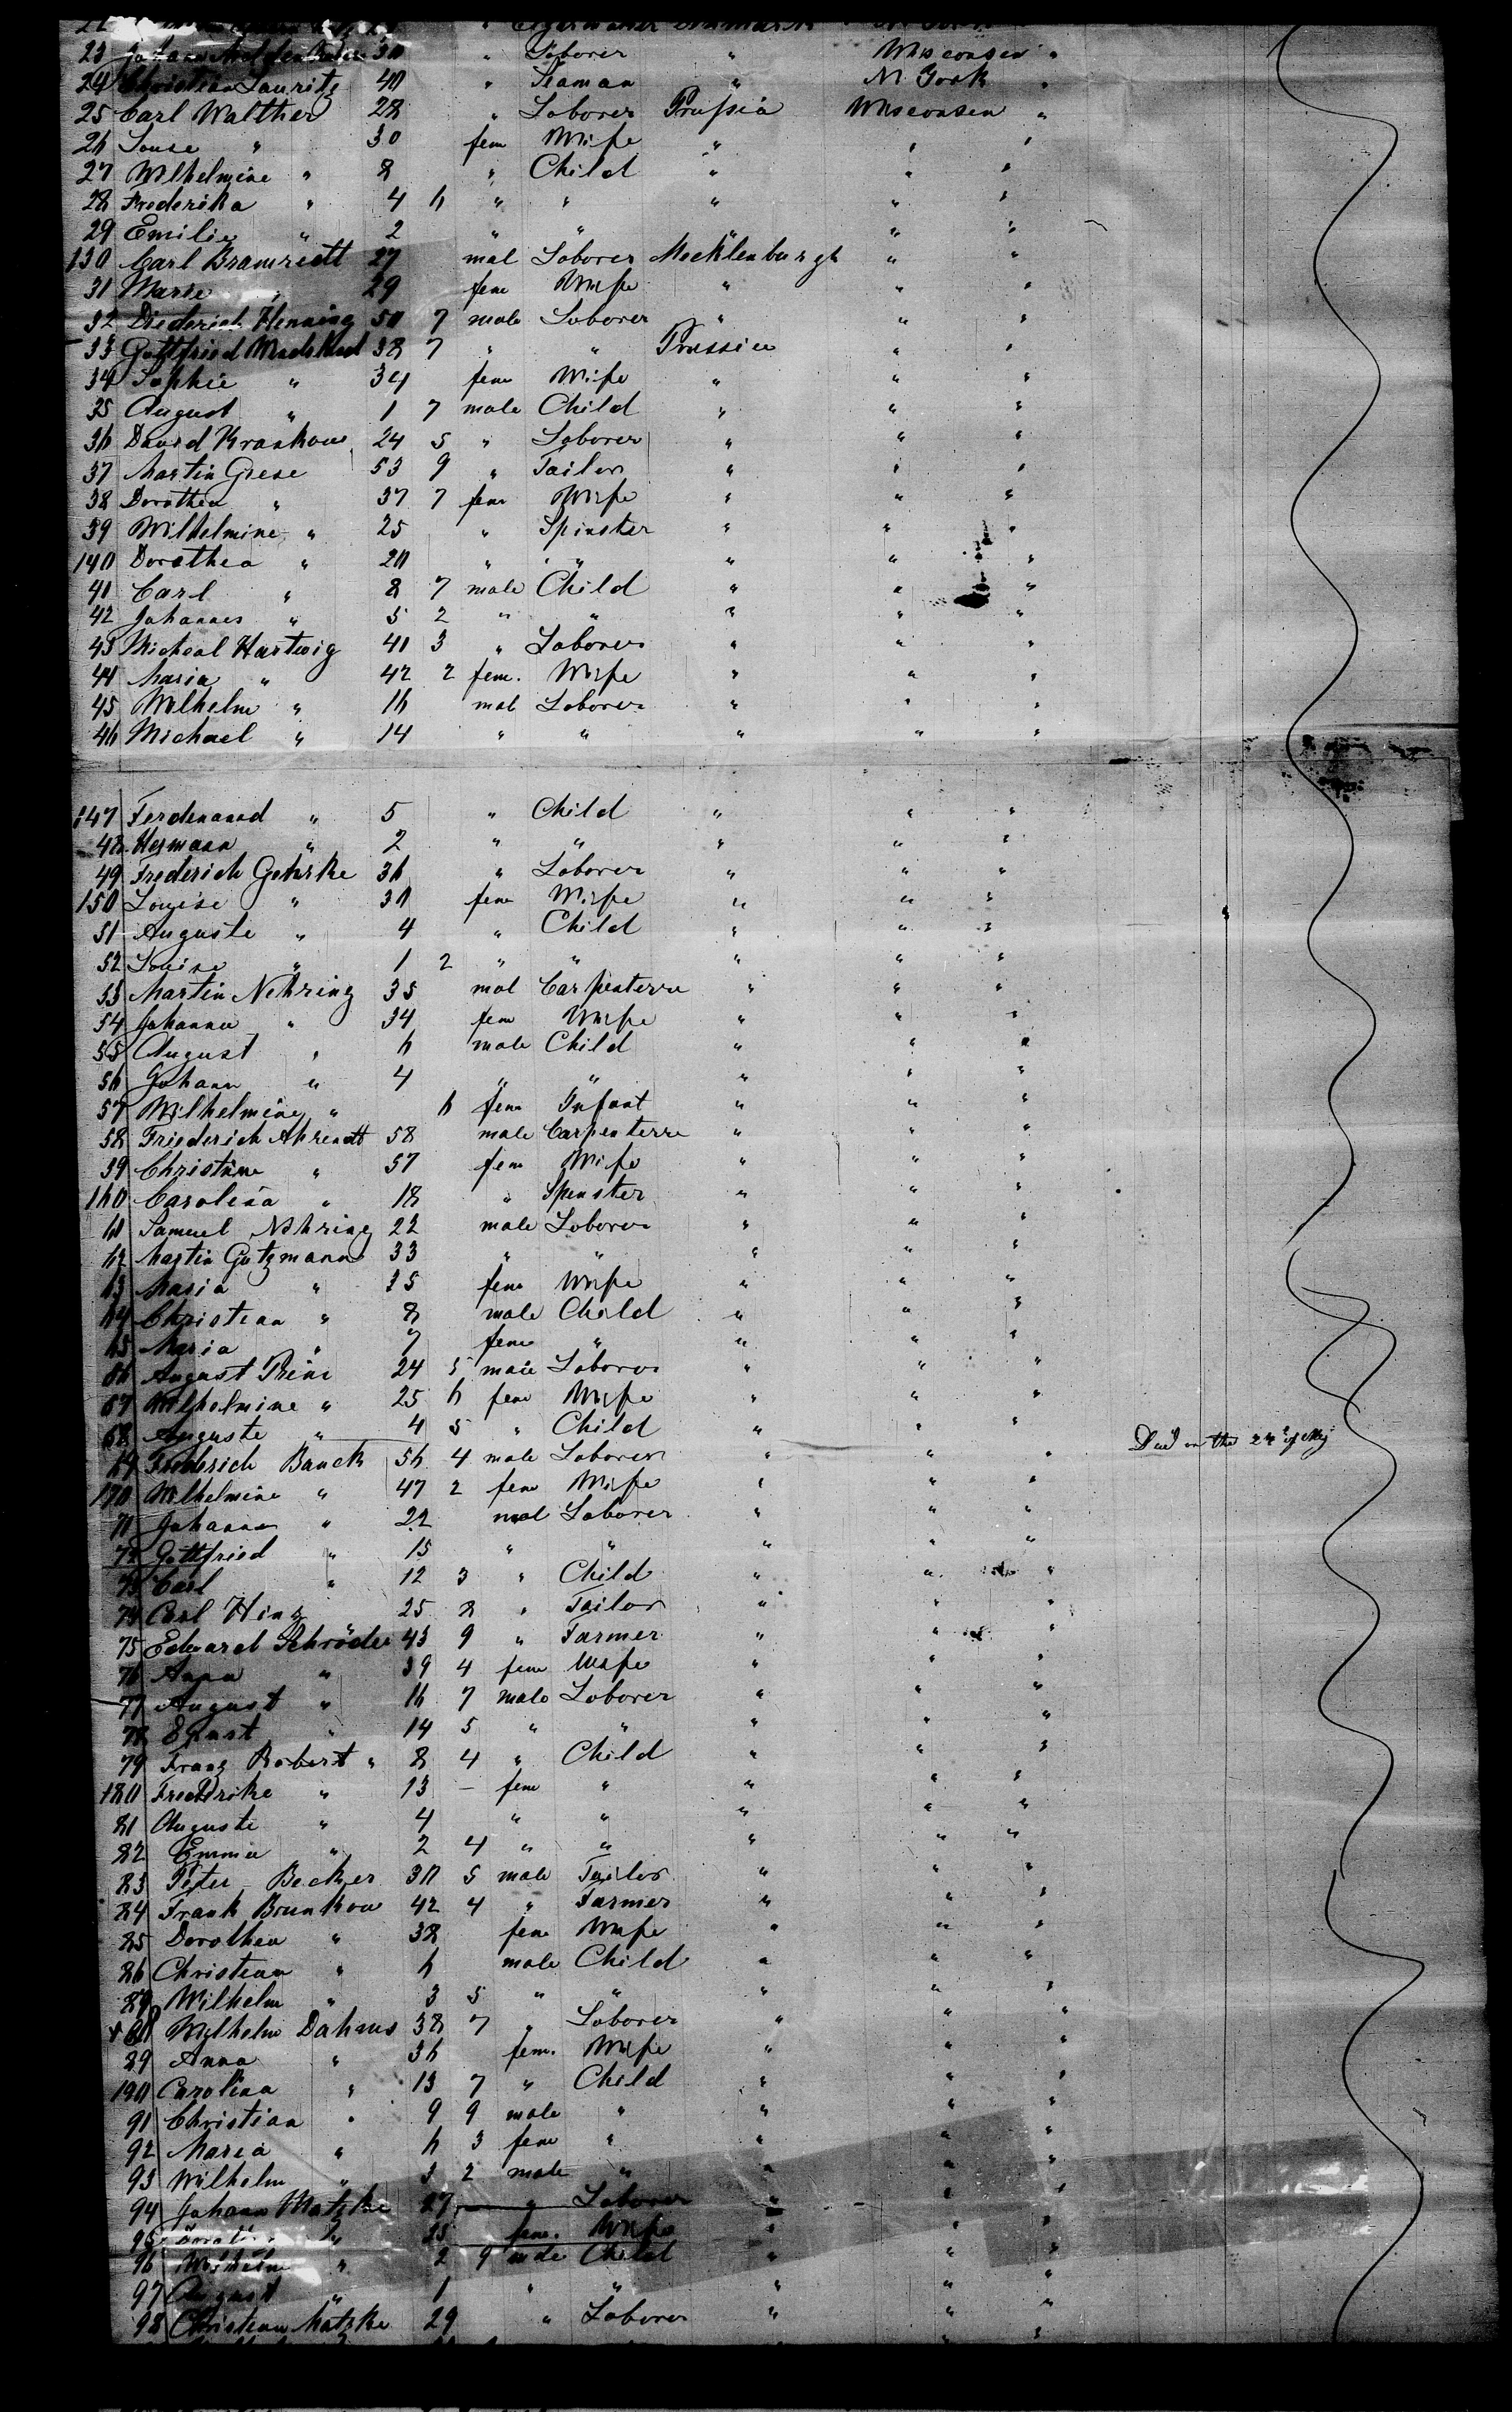 23 Johann 30 " Laborer " Wisconsin "
24 Christian Lauritz 40 " Seaman " N. York "
25 Carl Walther 28 " Laborer Prussia Wisconsen "
26 Louse " 30 fem Wife " " "
27 Wilhelmine " 8 " Child " " "
28 Frederika " 4 6 " " " " "
29 Emilie " 2 " " " "
130 Carl Bramriedt 27 mal Laborer Mecklenburgh " "
31 Marie " 29 fem Wife " " "
32 Diederich Henning 50 7 male Laborer " " "
33 Gottfried 38 7 " " Prussia " "
34 Sophie " 34 fem Wife " " "
35 August " 1 7 male Child " " "
36 David Krankow 24 5 " Laborer " " "
37 Martin Grese 53 9 " Tailor " " "
38 Dorothea " 37 7 fem Wife " " "
39 Wilhelmine " 25 " Spinster " " "
140 Dorothea " 20 " " " " "
41 Carl " 8 7 male Child " " "
42 Johannes " 5 2 " " " " "
43 Micheal Hartwig 41 3 " Laborer " " "
44 Maria " 42 2 fem. Wife " " "
45 Wilhelm " 16 mal Laborer " " "
46 Michael " 14 " " " " "
147 Ferdenand " 5 " Child " " "
48 Hermann " 2 " " " " "
49 Frederich Gehrke 36 " Laborer " " "
150 Louise " 30 fem Wife " " "
51 Auguste " 4 " Child " " "
52 Louise " 1 2 " " " " "
53 Martin Nehring 35 mal Carpenterre " " "
54 Johanna " 34 fem Wife " " "
55 August " 6 male Child " " "
56 Johann " 4 " " " " "
57 Wilhelmine " 6 fem Infant " " "
58 Friederich Ahrendt 58 male Carpenterre " " "
59 Christine " 57 fem Wife " " "
160 Carolina " 18 " Spenster " " "
61 Samuel Nehring 22 male Laborer " " "
62 Martin Gutzmann 33 " " " " "
63 Maria " 35 fem Wife " " "
64 Christian " 8 male Child " " "
65 Maria " 7 fem " " " "
66 August 24 5 male Laborer " " "
67 Wilhelmine " 25 6 fem Wife " " "
68 Auguste " 4 5 " Child " " " Died on the of May
69 Frederich Banck 56 4 male Laborer " " "
170 Wilhelmine " 47 2 fem Wife " " "
71 Johann " 22 mal Laborer " " "
72 Gottfried " 15 " " " " "
73 Carl " 12 3 " Child " " "
74 Carl Hinz 25 8 " Tailor " " "
75 Edward Schröder 43 9 " Farmer " " "
76 Anna " 39 4 fem Wife " " "
77 August " 16 7 male Laborer " " "
78 Ernst " 14 5 " " " " "
79 Franz Robert " 8 4 " Child " " "
180 Fredrike " 13 — fem " " " "
81 Auguste " 4 " " " " "
82 Emma " 2 4 " " " " "
83 Peter Becker 30 5 male Tailor " " "
84 Frank Brunkow 42 4 " Farmer " " "
85 Dorothea " 38 fem Wife " " "
86 Christian " 6 male Child " " "
87 Wilhelm " 3 5 " " " " "
Wilhelm Dahms 38 7 " Laborer " " "
89 Anna " 36 fem. Wife " " "
190 Carolina " 13 7 " Child " " "
91 Christian " 9 9 male " " " "
92 Maria " 6 3 fem " " " "
93 Wilhelm " 3 2 male " " " "
94 Johann Matzke 27 " Laborer " " "
95 " 25 fem. Wife " " "
96 Wilhelm " 2 9 male Child " " "
97 August " 1 " " " " "
98 Christian Matzke 29 " Laborer " " "